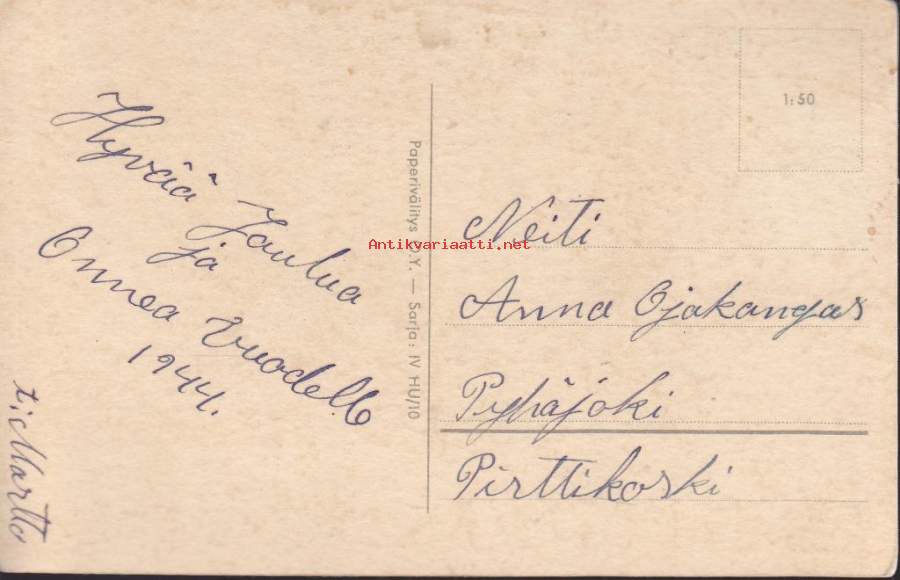 Hyvää Joulua
ja
Onnea Vuodelle
1944.
t: Martta
Paperivälitys O.Y. — Sarja: IV HU/10
1:50
Neiti
Anna Ojakangas
Pyhäjoki
Pirttikoski
Antikvariaatti.net